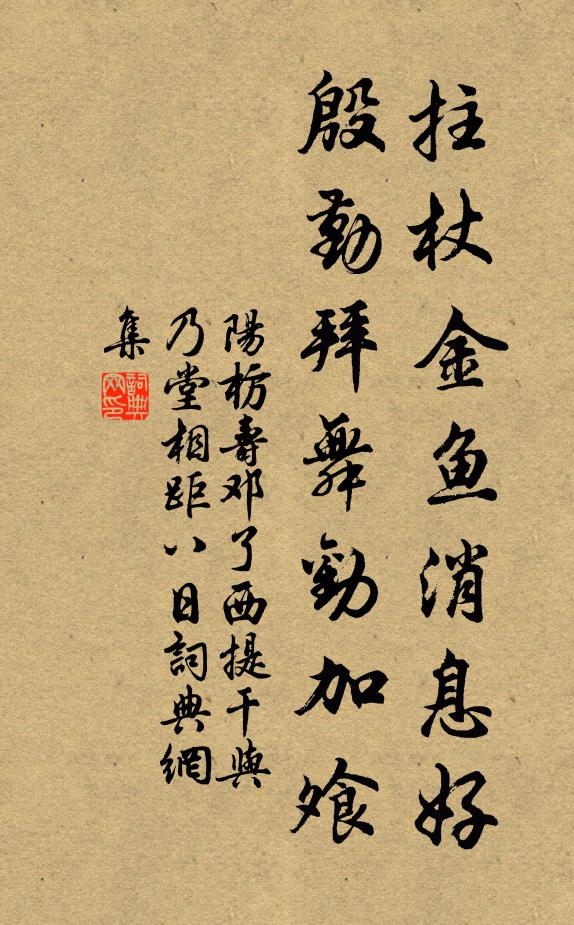 拄杖金鱼消息好
殷勤拜舞勸加飧
陽枋壽邓了西提干與
乃堂相距八日詞典網
集
詞典
网印